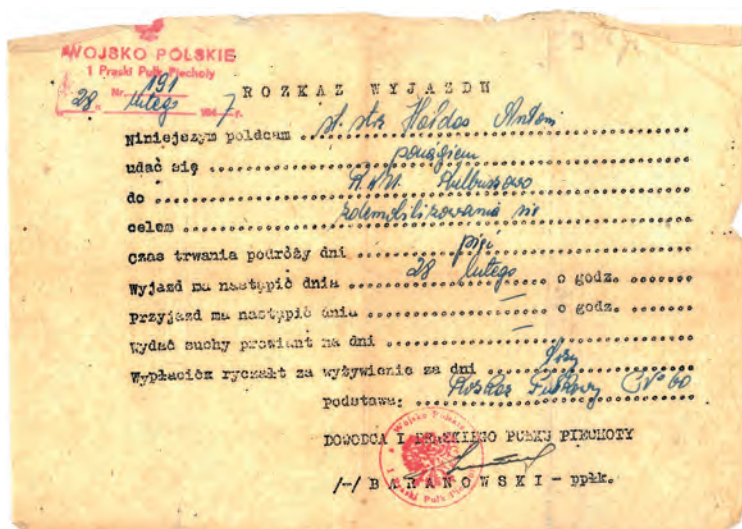 WOJSKO POLSKIE
1 Praski Pułk Piechoty
Nr. 191
28. lutego 1947 r.
ROZKAZ WYJAZDU
Niniejszym polecam st. str. Hałdas Antoni
udać się pociągiem
do R.K.U. Kolbuszowo
celem zdemobilizowania się
Czas trwania podróży dni pięć
Wyjazd ma nastąpić dnia 28 lutego o godz.
Przyjazd ma nastąpić dnia — o godz.
Wydać suchy prowiant na dni —
Wypłacić ryczałt za wyżywienie za dni
podstawa: Rozkaz Pułkowy Nr 60
DOWODCA I PRASKIEGO PUŁKU PIECHOTY
Wojsko Polskie
1 Praski Pułk Piechoty
/-/ BARANOWSKI - ppłk.